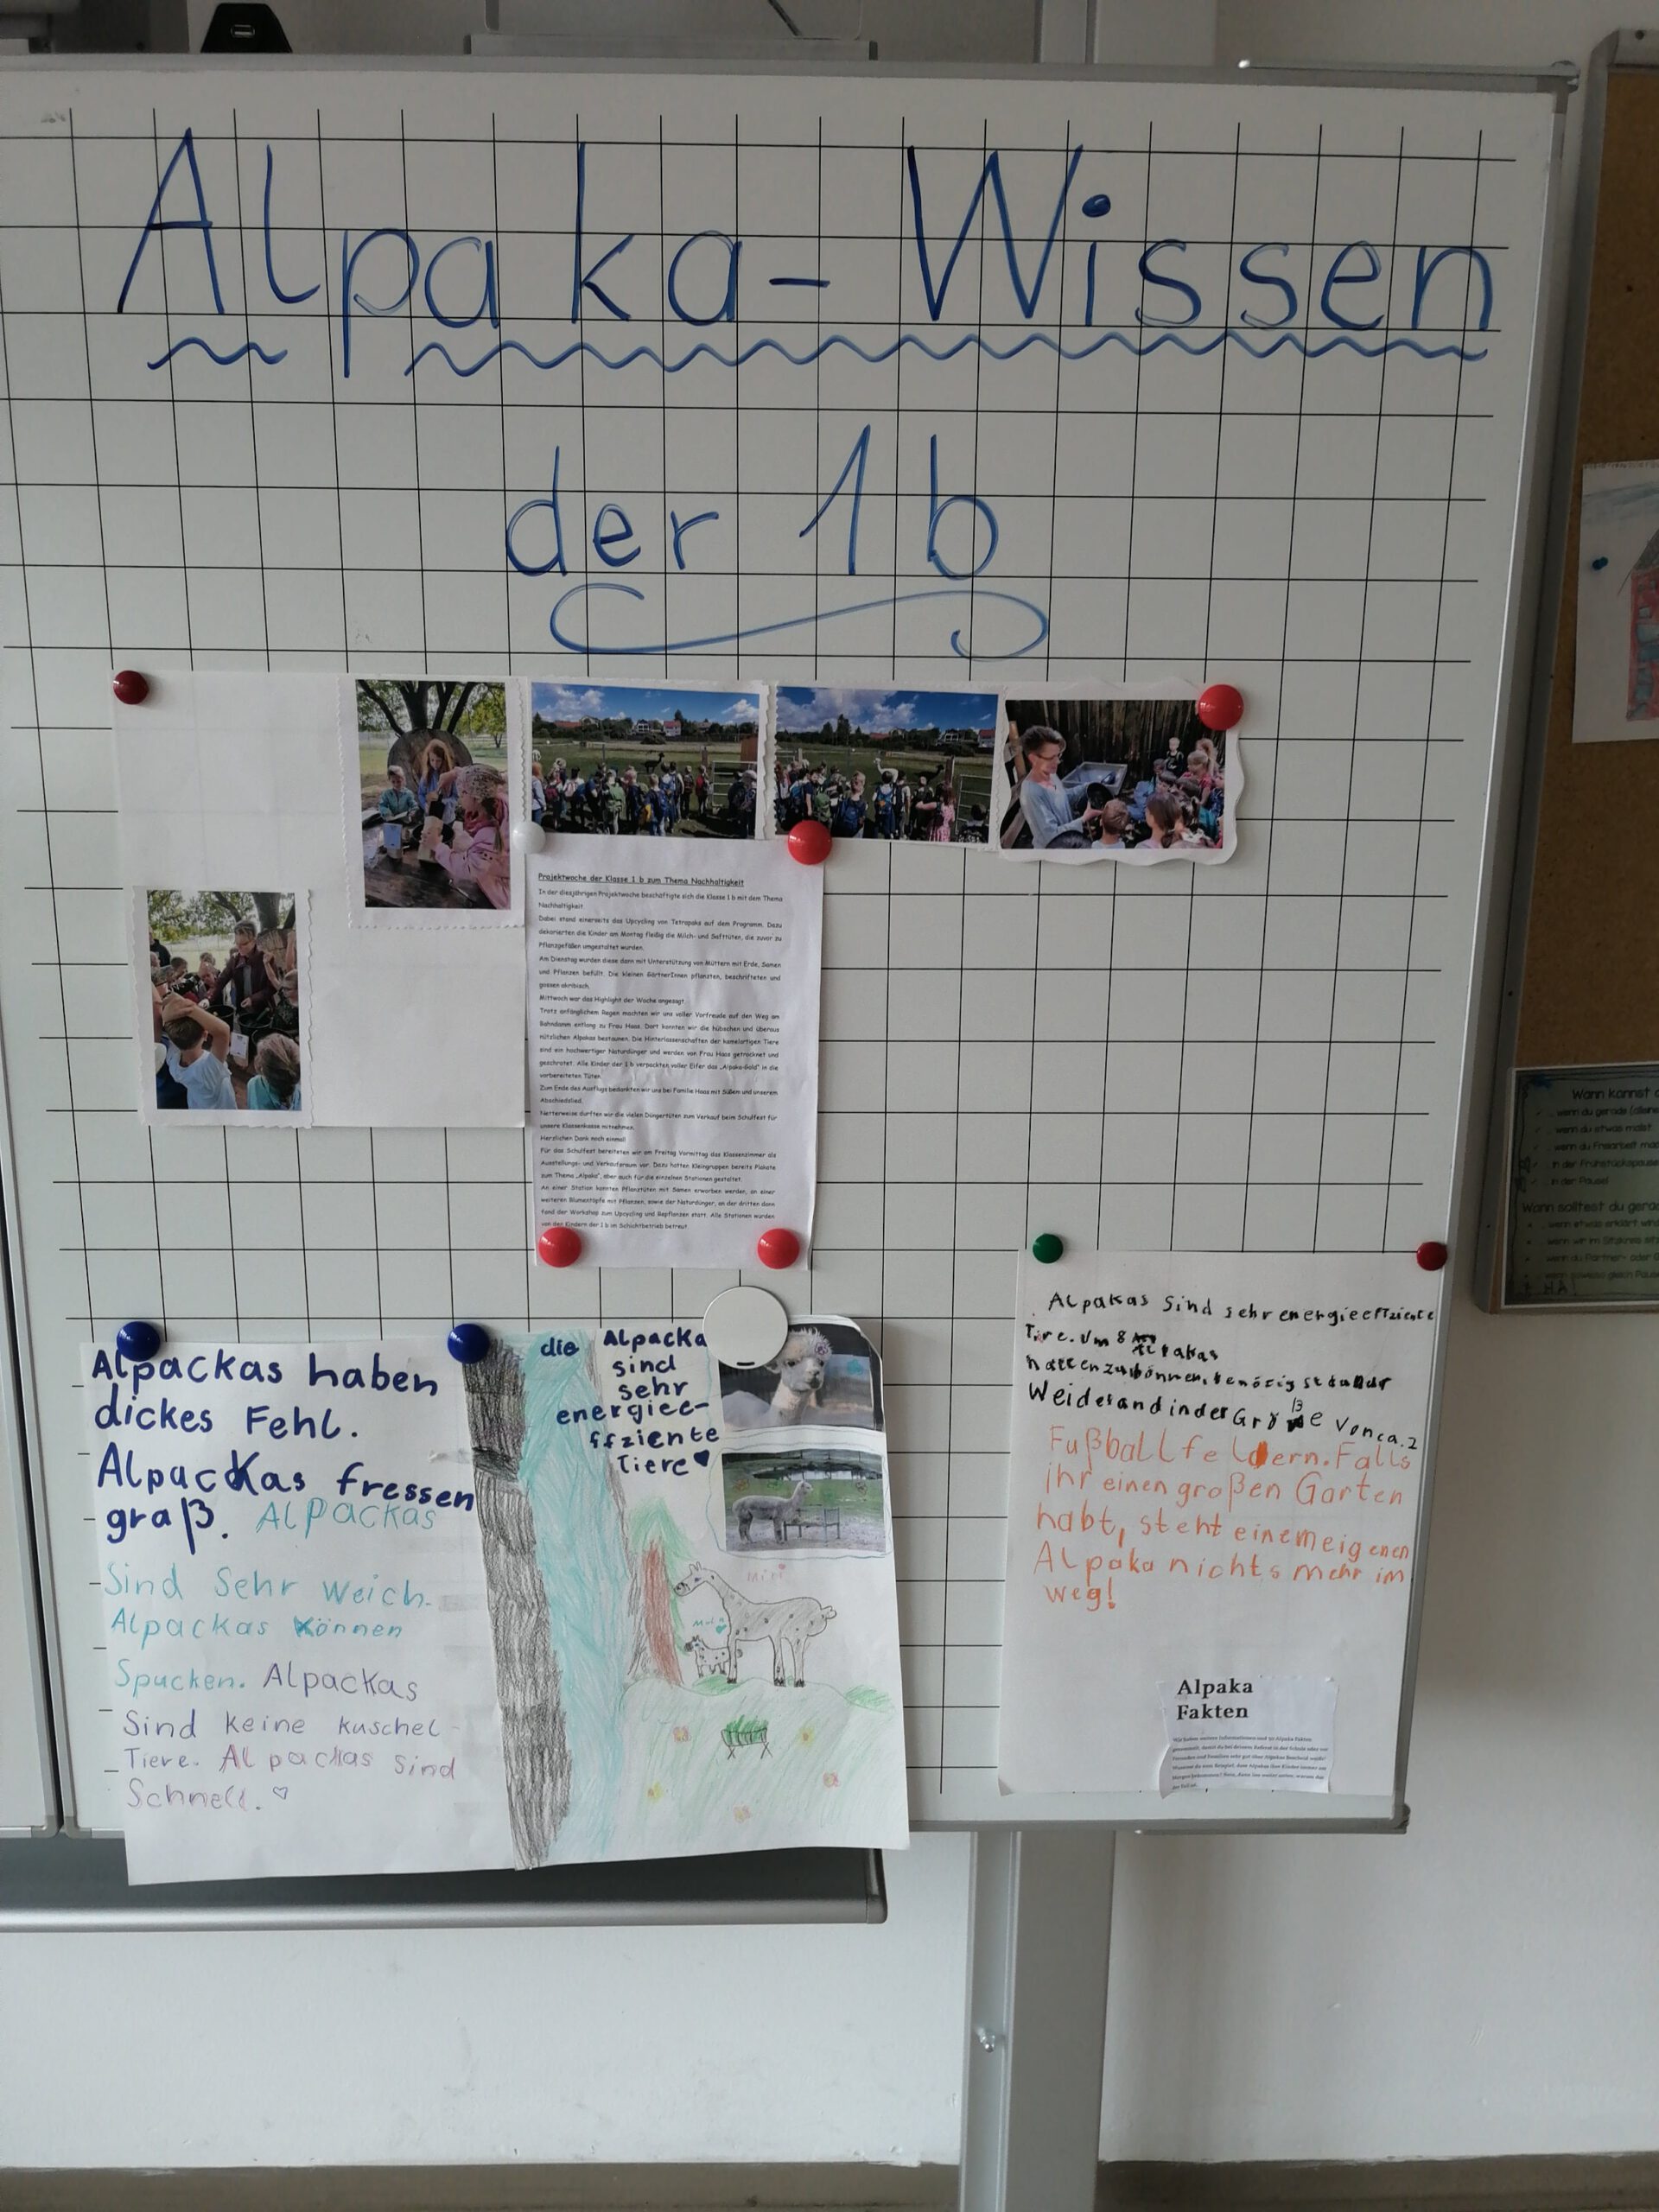 Alpaka-Wissen
der 1b
Projektwoche der Klasse 1 b zum Thema Nachhaltigkeit
In der diesjährigen Projektwoche beschäftigte sich die Klasse 1 b mit dem Thema
Nachhaltigkeit.
Dabei stand einerseits das Upcycling von Tetrapaks auf dem Programm. Dazu
dekorierten die Kinder am Montag fleißig die Milch- und Safttüten, die zuvor zu
Pflanzgefäßen umgestaltet wurden.
Am Dienstag wurden diese dann mit Unterstützung von Müttern mit Erde, Samen
und Pflanzen befüllt. Die kleinen GärtnerInnen pflanzten, beschrifteten und
gossen akribisch.
Mittwoch war das Highlight der Woche angesagt.
Trotz anfänglichem Regen machten wir uns voller Vorfreude auf den Weg am
Bahndamm entlang zu Frau Haas. Dort konnten wir die hübschen und überaus
nützlichen Alpakas bestaunen. Die Hinterlassenschaften der kamelartigen Tiere
sind ein hochwertiger Naturdünger und werden von Frau Haas getrocknet und
geschrotet. Alle Kinder der 1 b verpackten voller Eifer das „Alpaka-Gold" in die
vorbereiteten Tüten.
Zum Ende des Ausflugs bedankten wir uns bei Familie Haas mit Süßem und unserem
Abschiedslied.
Netterweise durften wir die vielen Düngertüten zum Verkauf beim Schulfest für
unsere Klassenkasse mitnehmen.
Herzlichen Dank noch einmal!
Für das Schulfest bereiteten wir am Freitag Vormittag das Klassenzimmer als
Ausstellungs- und Verkaufsraum vor. Dazu hatten Kleingruppen bereits Plakate
zum Thema „Alpaka", aber auch für die einzelnen Stationen gestaltet.
An einer Station konnten Pflanztüten mit Samen erworben werden, an einer
weiteren Blumentöpfe mit Pflanzen, sowie der Naturdünger, an der dritten dann
fand der Workshop zum Upcycling und Bepflanzen statt. Alle Stationen wurden
von den Kindern der 1 b im Schichtbetrieb betreut.
Alpackas haben
dickes Fehl.
Alpackas fressen
graß. Alpackas
Sind Sehr weich.
Alpackas können
Spucken. Alpackas
Sind keine kuschel-
Tiere. Alpackas sind
Schnell.
die Alpacka
sind
sehr
energiee-
ffziente
Tiere
Miri
Alpakas Sind sehr energieeffziente
Tire. Um 8
Weideland in der Größe Von ca. 2
Fußballfeldern. Falls
ihr einen großen Garten
habt, steht einem eigenen
Alpaka nichts mehr im
weg!
Alpaka
Fakten
Wann kannst
wenn du gerade
wenn du etwas malst
wenn du Freiarbeit
in der Frühstückspause
in der Pause!
Wann solltest du
wenn etwas erklärt
wenn wir im Sitzkreis
wenn du Partner- oder